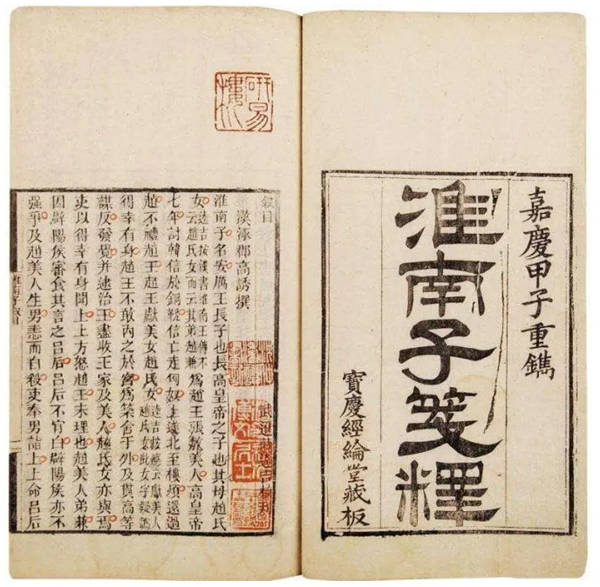 嘉慶甲子重鐫
淮南子箋釋
寶慶經綸堂藏板
敘目
漢涿郡高誘撰
淮南子名安厲王長子也長高皇帝之子也其母趙氏
女逵吉按漢書淮南王傳不云趙氏女而云其弟趙兼爲趙王張敖美人高皇帝
七年討韓信於銅鞮信亡走匈奴上遂北至樓煩還過
趙不禮趙王趙王獻美女趙氏女逵吉按應云獻美人趙氏女此女字疑誤
得幸有身趙王不敢內之於宮爲築舍于外及貫高等
謀反發覺并逮治王盡收王家及美人趙氏女亦與焉
吏以得幸有身聞上上方怒趙王未理也趙美人弟兼
因辟陽侯審食其言之呂后呂后不肯白辟陽侯亦不
強爭及趙美人生男恚而自殺吏奉男詣上上命呂后
研易樓